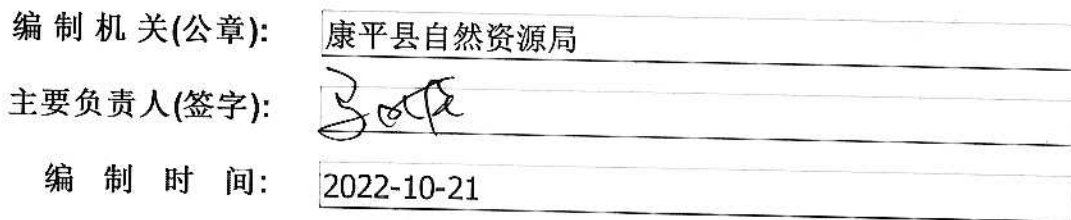 编制机关(公章): 康平县自然资源局
主要负责人(签字):
编制时间: 2022-10-21